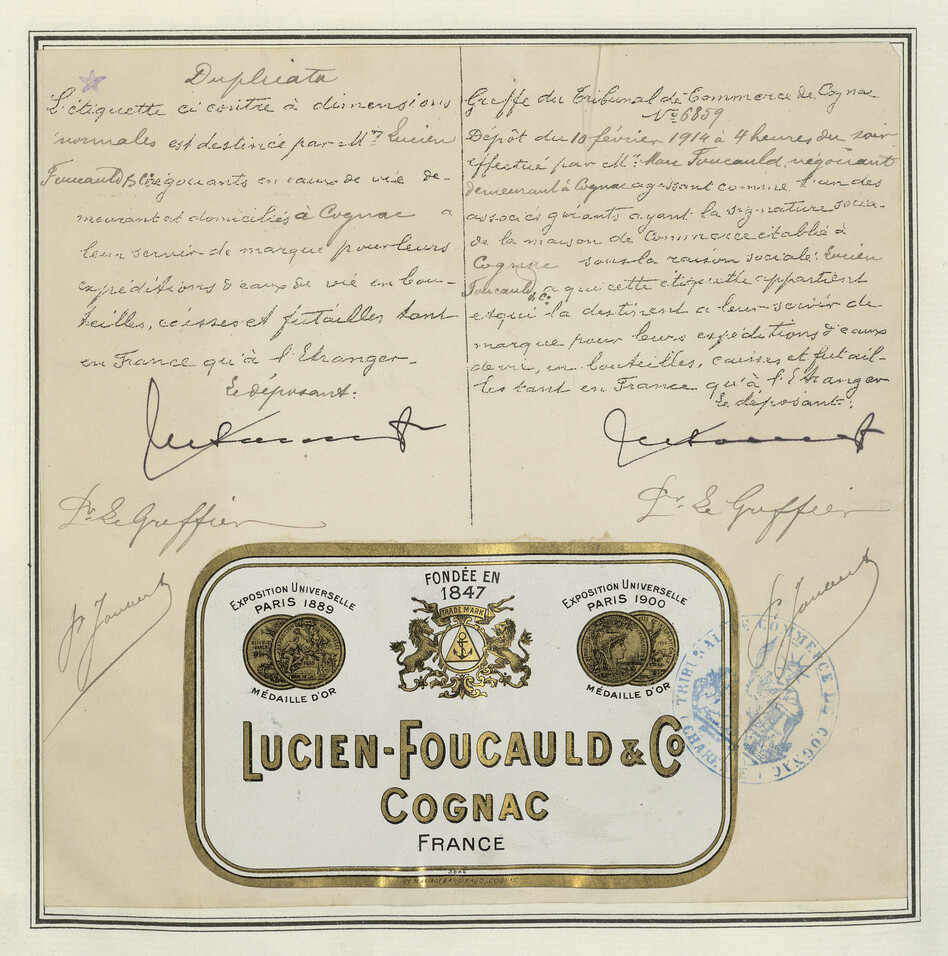 Duplicata
L'étiquette ci contre à dimensions
normales est destinée par Mrs Lucien
Foucauld & Co négociants en eaux de vie de-
meurant et domiciliés à Cognac a
leur servir de marque pour leurs
expéditions d'eaux de vie en bou-
teilles, caisses et futailles tant
en France qu'à l'Etranger-
Le déposant:
Pr Le Greffier
Greffe du Tribunal de Commerce de Cognac
No 6859
Dépôt du 10 février 1914 à 4 heures du soir
effectué par Mr Marc Foucauld, négociant
demeurant à Cognac agissant comme l'un des
associés gérants ayant la signature socia-
de la maison de Commerce établie à
Cognac sous la raison sociale: Lucien
Foucauld & Co, a qui cette étiquette appartient
et qui la destinent a leur servir de
marque pour leurs expéditions d'eaux
de vie, en bouteilles, caisses et futail-
les tant en France qu'à l'Etranger
Le déposant:
Pr Le Greffier
FONDÉE EN
1847
EXPOSITION UNIVERSELLE
PARIS 1889
MÉDAILLE D'OR
TRADE MARK
EXPOSITION UNIVERSELLE
PARIS 1900
MÉDAILLE D'OR
LUCIEN-FOUCAULD & Co
COGNAC
FRANCE
TRIBUNAL DE COMMERCE DE COGNAC